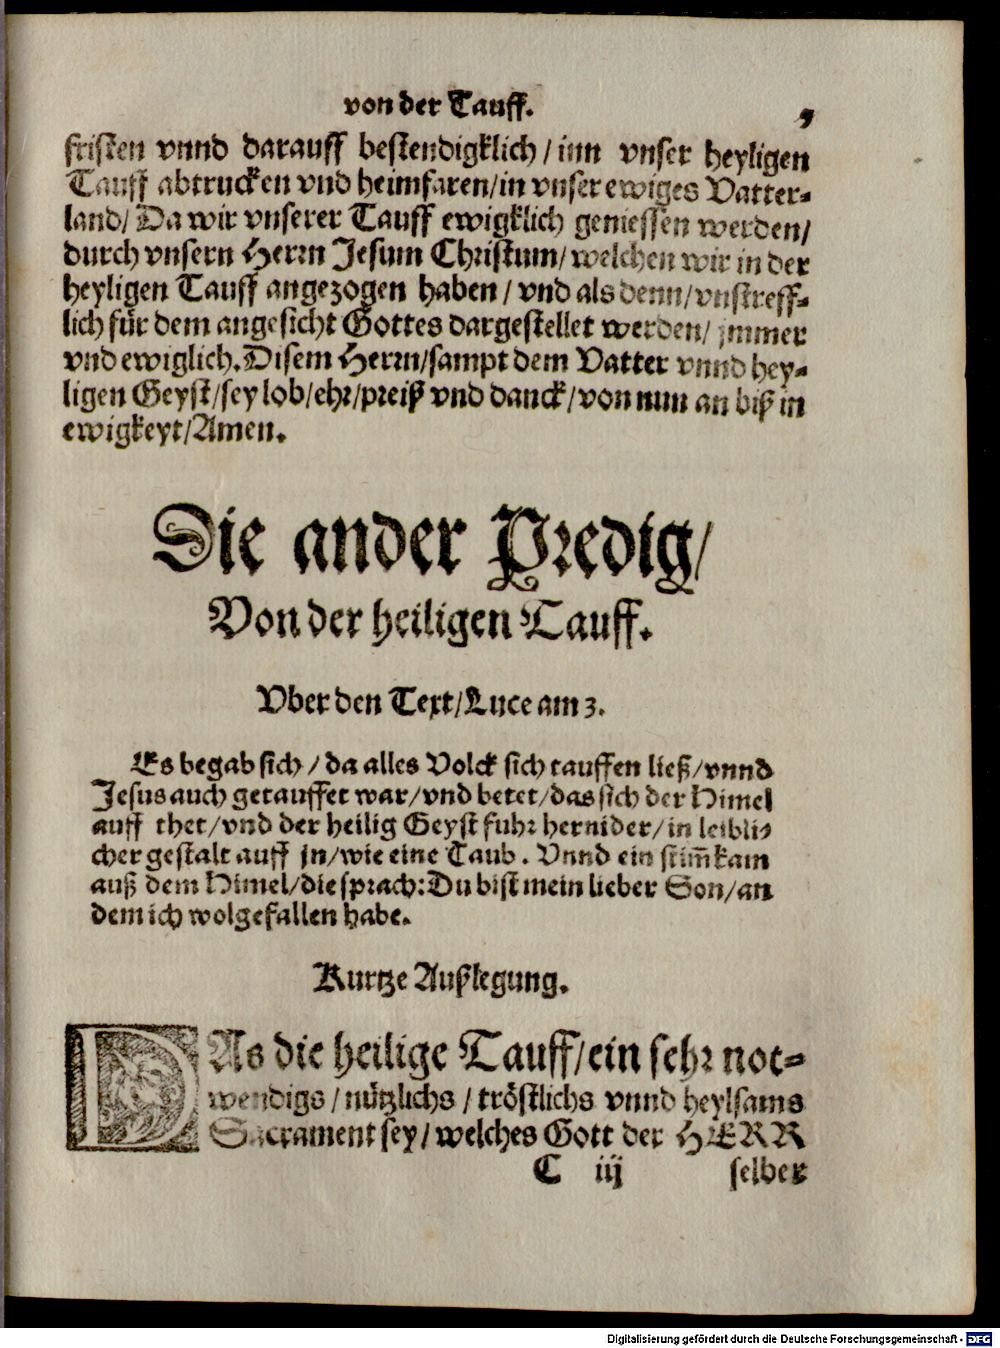 von der Tauff. 9
fristen vnnd darauff bestendigklich / inn vnser heyligen
Tauff abtrucken vnd heimfaren/in vnser ewiges Vatter-
land/ Da wir vnserer Tauff ewigklich geniessen werden/
durch vnsern Herrn Jesum Christum/ welchen wir in der
heyligen Tauff angezogen haben / vnd als denn/ vnstreff-
lich für dem angesicht Gottes dargestellet werden/ jmmer
vnd ewiglich. Disem Herrn/sampt dem Vatter vnnd hey-
ligen Geyst/sey lob/ehr/preiß vnd danck/von nun an biß in
ewigkeyt/Amen.
Die ander Predig/
Von der heiligen Tauff.
Vber den Text/Luce am 3.
Es begab sich / da alles Volck sich tauffen ließ/vnnd
Jesus auch getauffet war/vnd betet/das sich der Himel
auff thet/vnd der heilig Geyst fuhr hernider/in leibli-
cher gestalt auff jn/wie eine Taub. Vnnd ein stim̃ kam
auß dem Himel/die sprach: Du bist mein lieber Son/an
dem ich wolgefallen habe.
Kurtze Außlegung.
DAs die heilige Tauff/ein sehr not-
wendigs / nützlichs / tröstlichs vnnd heylsams
Sacrament sey/ welches Gott der HERR
C iij selber
Digitalisierung gefördert durch die Deutsche Forschungsgemeinschaft - DFG